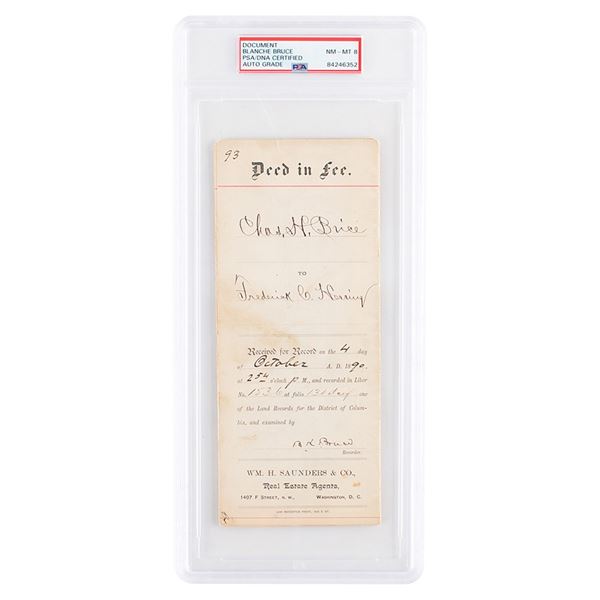 DOCUMENT
BLANCHE BRUCE NM - MT 8
PSA/DNA CERTIFIED
AUTO GRADE PSA 84246352
93
Deed in Fee.
Chas. H. Brice
TO
Frederick C.
Received for Record on the 4 day
of October A. D. 1890,
at 2 54 o'clock P M., and recorded in Liber
No. 1536 at folio 13 et seq one
of the Land Records for the District of Colum-
bia, and examined by
B K Bruce
Recorder.
WM. H. SAUNDERS & CO.,
Real Estate Agents,
1407 F STREET, N. W., WASHINGTON, D. C.